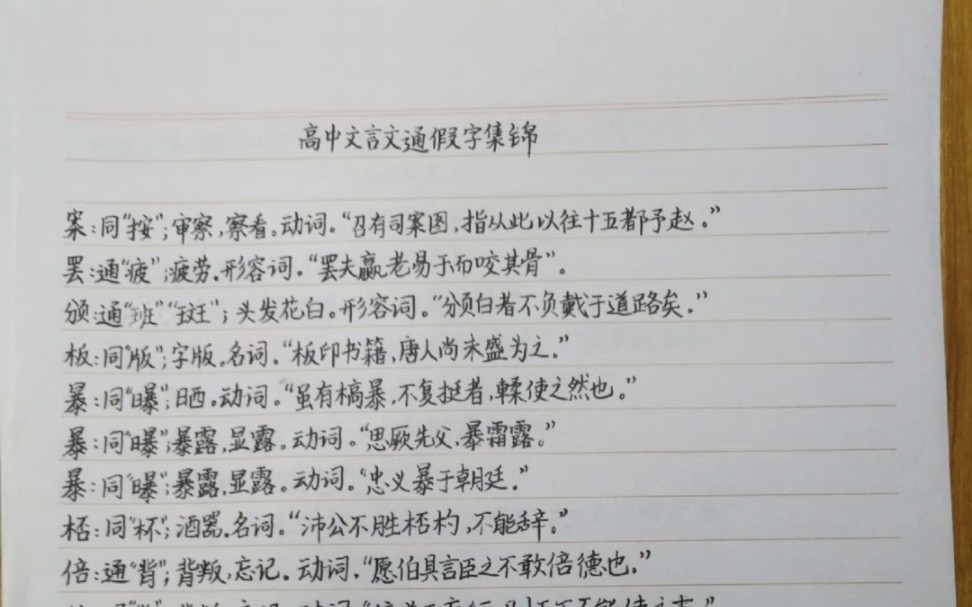 高中文言文通假字集锦
案:同“按”;审察,察看。动词。“召有司案图,指从此以往十五都予赵。”
罢:通“疲”;疲劳。形容词。“罢夫羸老易于而咬其骨”。
颁:通“班”“斑”;头发花白。形容词。“颁白者不负戴于道路矣。”
板:同“版”;字版。名词。“板印书籍,唐人尚未盛为之。”
暴:同“曝”;日晒。动词。“虽有槁暴,不复挺者,輮使之然也。”
暴:同“曝”;暴露,显露。动词。“思厥先父,暴霜露。”
暴:同“曝”;暴露,显露。动词。“忠义暴于朝廷。”
桮:同“杯”;酒器。名词。“沛公不胜桮杓,不能辞。”
倍:通“背”;背叛,忘记。动词。“愿伯具言臣之不敢倍德也。”